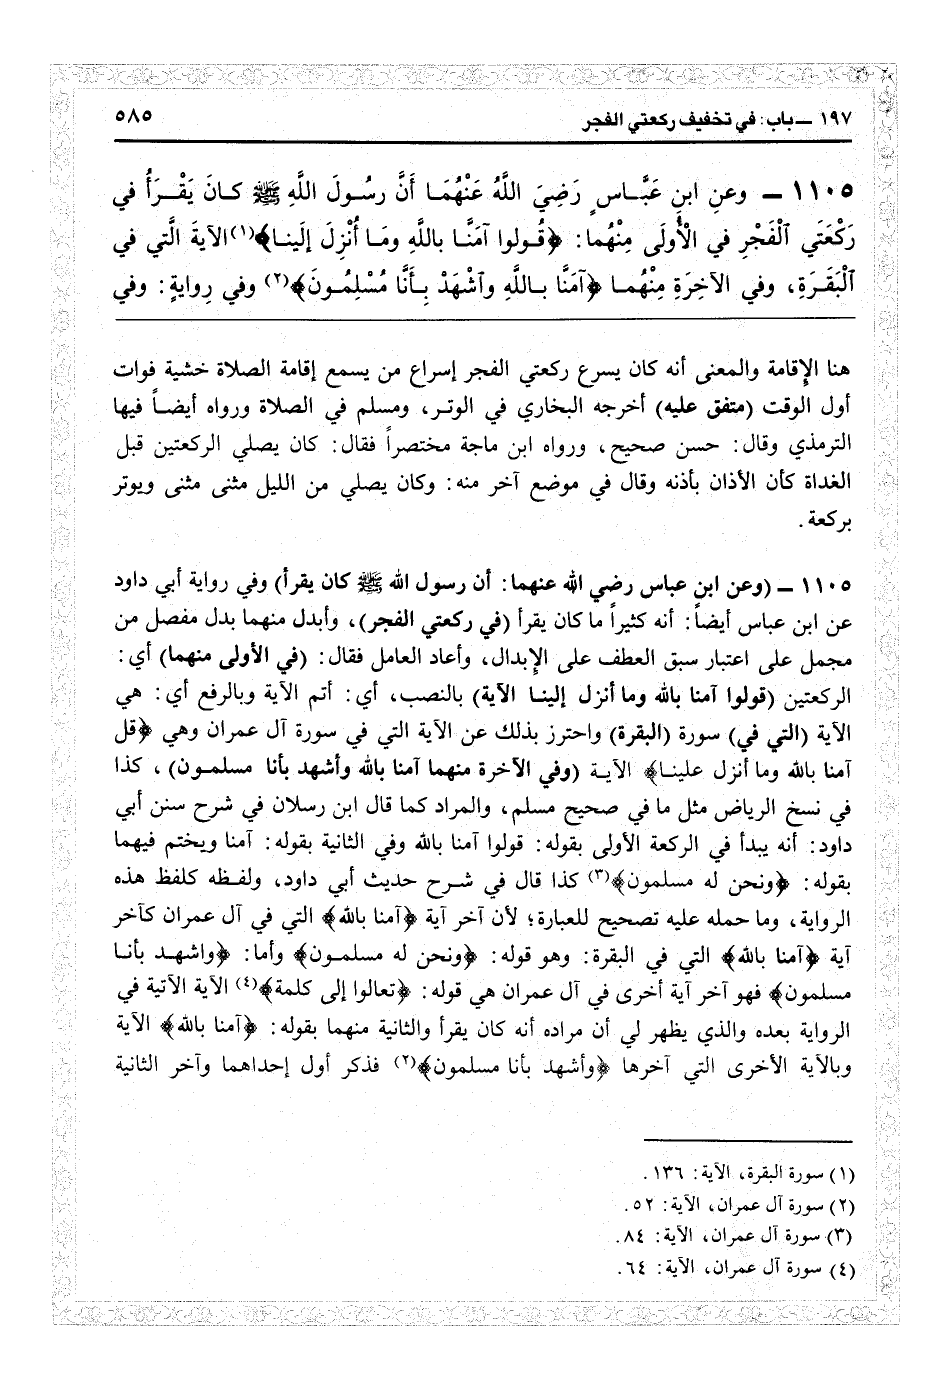 ١٩٧ ـ باب: في تخفيف ركعتي الفجر
٥٨٥
١١٠٥ ـ وعنِ ابنِ عَبَّاسٍ رَضِيَ اللَّهُ عَنْهُمَا أَنَّ رسُولَ اللَّهِ ﷺ كانَ يَقْرَأُ في
رَكْعَتَي ٱلْفَجْرِ في الْأُولَى مِنْهُما: ﴿قُولوا آمَنَّا باللَّهِ ومَا أُنْزِلَ إلَينا﴾(١) الآيةَ الَّتي في
ٱلْبَقَرَةِ، وفي الآخِرَةِ مِنْهُما ﴿آمَنَّا باللَّهِ وٱشْهَدْ بِأَنَّا مُسْلِمُونَ﴾(٢) وفي رِوايةٍ: وفي
هنا الإقامة والمعنى أنه كان يسرع ركعتي الفجر إسراع من يسمع إقامة الصلاة خشية فوات
أول الوقت (متفق عليه) أخرجه البخاري في الوتر، ومسلم في الصلاة ورواه أيضاً فيها
الترمذي وقال: حسن صحيح، ورواه ابن ماجة مختصراً فقال: كان يصلي الركعتين قبل
الغداة كأن الأذان بأذنه وقال في موضع آخر منه: وكان يصلي من الليل مثنى مثنى ويوتر
بركعة.
١١٠٥ ـ (وعن ابن عباس رضي الله عنهما: أن رسول الله ﷺ كان يقرأ) وفي رواية أبي داود
عن ابن عباس أيضاً: أنه كثيراً ما كان يقرأ (في ركعتي الفجر)، وأبدل منهما بدل مفصل من
مجمل على اعتبار سبق العطف على الإبدال، وأعاد العامل فقال: (في الأولى منهما) أي:
الركعتين (قولوا آمنا بالله وما أنزل إلينا الآية) بالنصب، أي: أتم الآية وبالرفع أي: هي
الآية (التي في) سورة (البقرة) واحترز بذلك عن الآية التي في سورة آل عمران وهي ﴿قل
آمنا بالله وما أنزل علينا﴾ الآية (وفي الآخرة منهما آمنا بالله وأشهد بأنا مسلمون)، كذا
في نسخ الرياض مثل ما في صحيح مسلم، والمراد كما قال ابن رسلان في شرح سنن أبي
داود: أنه يبدأ في الركعة الأولى بقوله: قولوا آمنا بالله وفي الثانية بقوله: آمنا ويختم فيهما
بقوله: ﴿ونحن له مسلمون﴾(٣) كذا قال في شرح حديث أبي داود، ولفظه كلفظ هذه
الرواية، وما حمله عليه تصحيح للعبارة؛ لأن آخر آية ﴿آمنا بالله﴾ التي في آل عمران كآخر
آية ﴿آمنا بالله﴾ التي في البقرة: وهو قوله: ﴿ونحن له مسلمون﴾ وأما: ﴿واشهد بأنا
مسلمون﴾ فهو آخر آية أخرى في آل عمران هي قوله: ﴿تعالوا إلى كلمة﴾(٤) الآية الآتية في
الرواية بعده والذي يظهر لي أن مراده أنه كان يقرأ والثانية منهما بقوله: ﴿آمنا بالله﴾ الآية
وبالآية الأخرى التي آخرها ﴿وأشهد بأنا مسلمون﴾(٢) فذكر أول إحداهما وآخر الثانية
(١) سورة البقرة، الآية: ١٣٦.
(٢) سورة آل عمران، الآية: ٥٢.
(٣) سورة آل عمران، الآية: ٨٤.
(٤) سورة آل عمران، الآية: ٦٤.